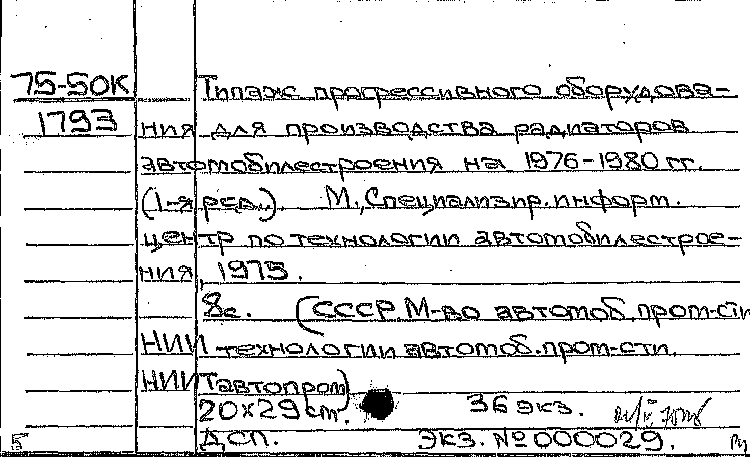 75-50К Типаж прогрессивного оборудова-
1793 ния для производства радиаторов
автомобилестроения на 1976-1980 гг.
(1-я ред.). М., Специализир. информ.
центр по технологии автомобилестрое-
ния, 1975.
8с. (СССР. М-во автомоб. пром-сти
НИИ технологии автомоб. пром-сти.
НИИТавтопром)
20×29 см. 36 экз.
5 ДСП. Экз. № 000029.